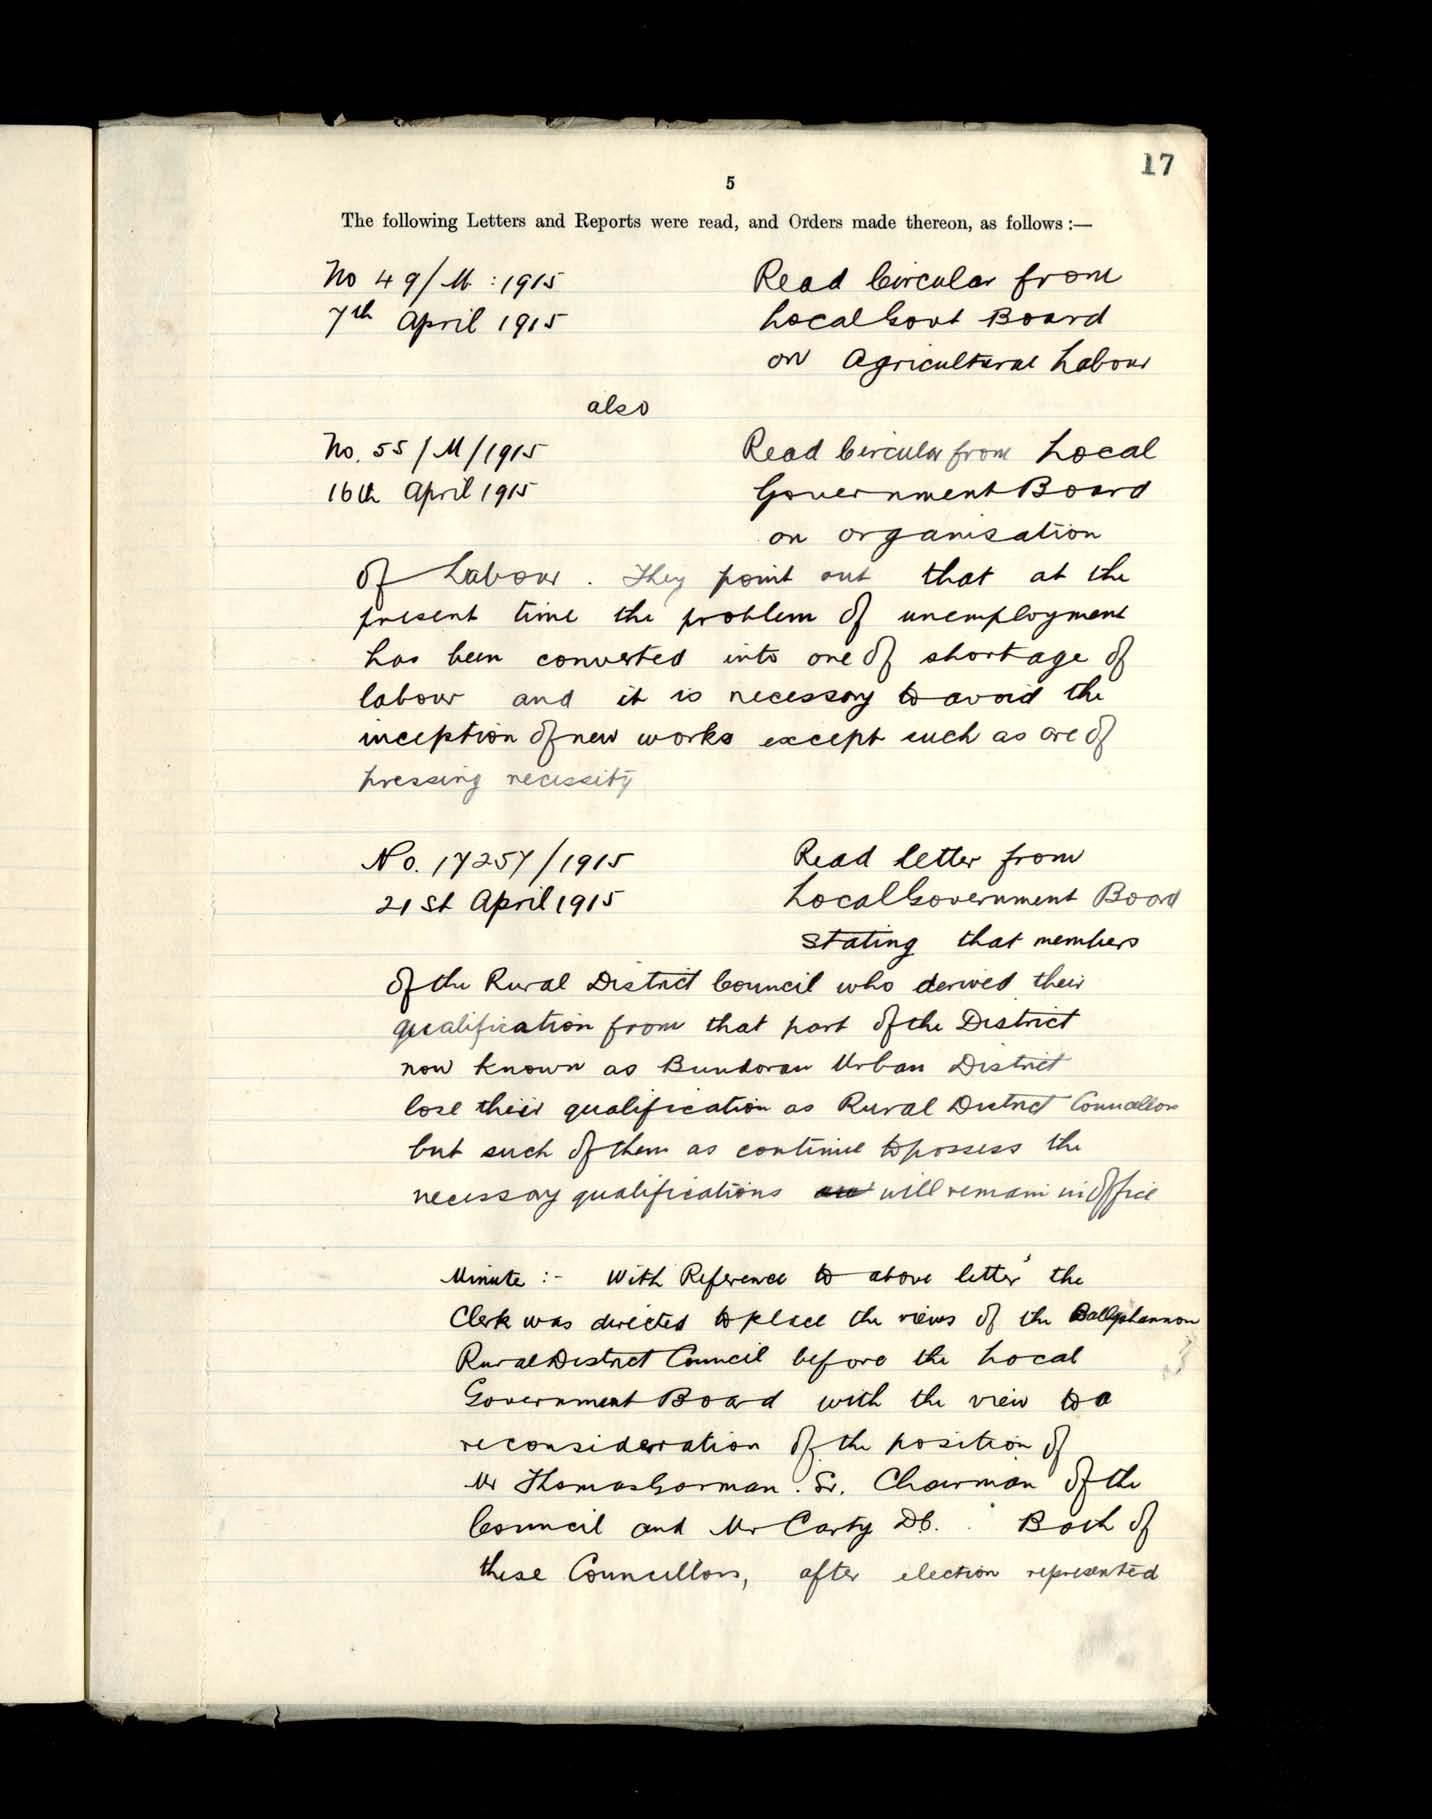 17
5
The following Letters and Reports were read, and Orders made thereon, as follows :—
No 49/M : 1915 Read Circular from
7th April 1915 Local Govt Board
on Agricultural Labour
also
No. 55/M/1915 Read Circular from Local
16th April 1915 Government Board
on organisation
of Labour. They point out that at the
present time the problem of unemployment
has been converted into one of shortage of
labour and it is necessary to avoid the
inception of new works except such as are of
pressing necessity
No. 17257/1915 Read letter from
21st April 1915 Local Government Board
stating that members
of the Rural District Council who derived their
qualification from that part of the District
now known as Bundoran Urban District
lose their qualification as Rural District Councillors
but such of them as continue to possess the
necessary qualifications are will remain in Office
Minute :- With Reference to above letter the
Clerk was directed to place the views of the Ballyshannon
Rural District Council before the Local
Government Board with the view to a
reconsideration of the position of
Mr Thomas Gorman. Sr. Chairman of the
Council and Mr Carty DC. Both of
these Councillors, after election represented